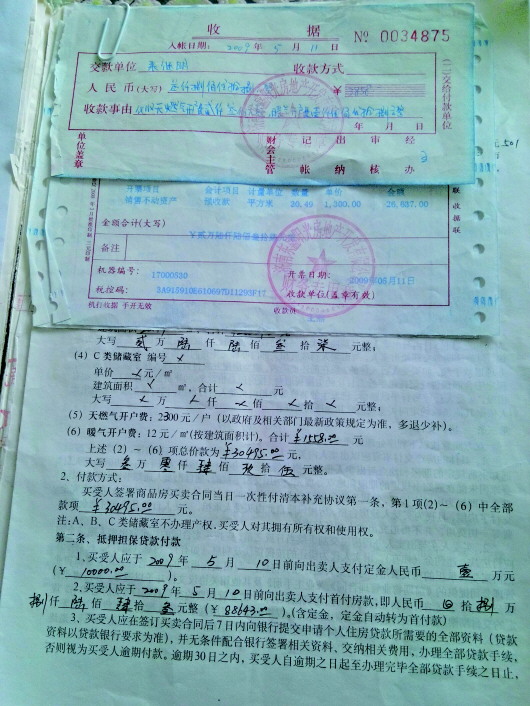 收 据
№ 0034875
入帐日期: 2009 年 5 月 11 日
交款单位 收款方式
人民币(大写) ¥ 3858
收款事由
年 月 日
单位盖章 财会主管 记帐 出纳 审核 经办
(二)交给付款单位
开票项目 合计项目 计量单位 数量 单价 金额
销售不动产 按收款 平方米 20.49 1,300.00 26,637.00
金额合计(大写)
备注
机器编号: 17000530 开票日期: 2009年05月11日
税控码: 收款单位(盖章有效)
机打收据 手开无效 收款员
大写 贰 万 陆 仟 陆 佰 叁 拾 柒 元整;
(4) C类储藏室 编号
单价 元/㎡
建筑面积 ㎡, 合计 元
大写 万 仟 佰 拾 元整;
(5) 天燃气开户费: 2300元/户 (以政府及相关部门最新政策规定为准, 多退少补)。
(6) 暖气开户费: 12元/㎡(按建筑面积计)。合计 ¥1558.00 元
上述 (2) ~ (6) 项总价款为 ¥30495.00 元,
大写 叁 万 零 仟 肆 佰 玖 拾 伍 元整。
2. 付款方式:
买受人签署商品房买卖合同当日一次性付清本补充协议第一条, 第1项(2)~ (6) 中全部
款项 ¥30495.00 元。
注: A、B、C类储藏室不办理产权, 买受人对其拥有所有权和使用权。
第二条、抵押担保贷款付款
1. 买受人应于 2009 年 5 月 10 日前向出卖人支付定金人民币 壹 万元
(¥ 10000.00 )。
2. 买受人应于 2009 年 5 月 10 日前向出卖人支付首付房款, 即人民币 拾 捌 万
捌 仟 陆 佰 肆 拾 叁 元整 (¥ 88643.00 )。(含定金, 定金自动转为首付款)
3. 买受人应在签订买卖合同后7日内向银行提交申请个人住房贷款所需要的全部资料 (贷款
资料以贷款银行要求为准), 并无条件配合银行签署相关资料, 交纳相关费用, 办理全部贷款手续,
否则视为买受人逾期付款。逾期30日之内, 买受人自逾期之日起至办理完毕全部贷款手续之日止,